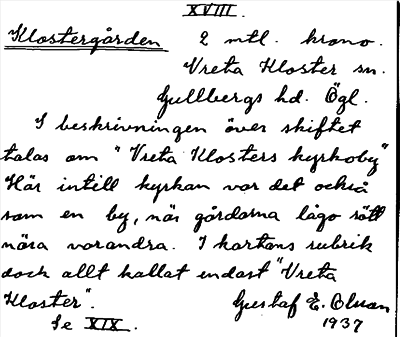 XVIII.
Klostergården 2 mtl. krono.
Vreta Kloster sn.
Gullbergs hd. Ögl.
I beskrivningen över skiftet
talas om "Vreta Klosters kyrkoby"
Här intill kyrkan var det också
som en by, när gårdarna lågo rätt
nära varandra. I kartans rubrik
dock allt kallat endast "Vreta
Kloster". Gustaf E. Olsson
Se XIX. 1937